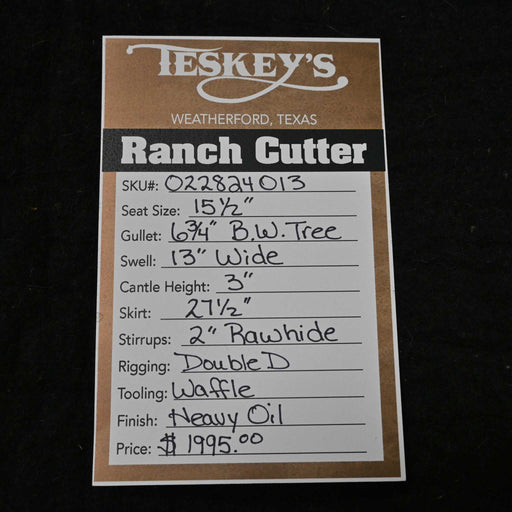 TESKEY'S
WEATHERFORD, TEXAS
Ranch Cutter
SKU#: 022824013
Seat Size: 15 1/2"
Gullet: 6 3/4" B.W. Tree
Swell: 13" Wide
Cantle Height: 3"
Skirt: 27 1/2"
Stirrups: 2" Rawhide
Rigging: Double D
Tooling: Waffle
Finish: Heavy Oil
Price: $ 1995.00